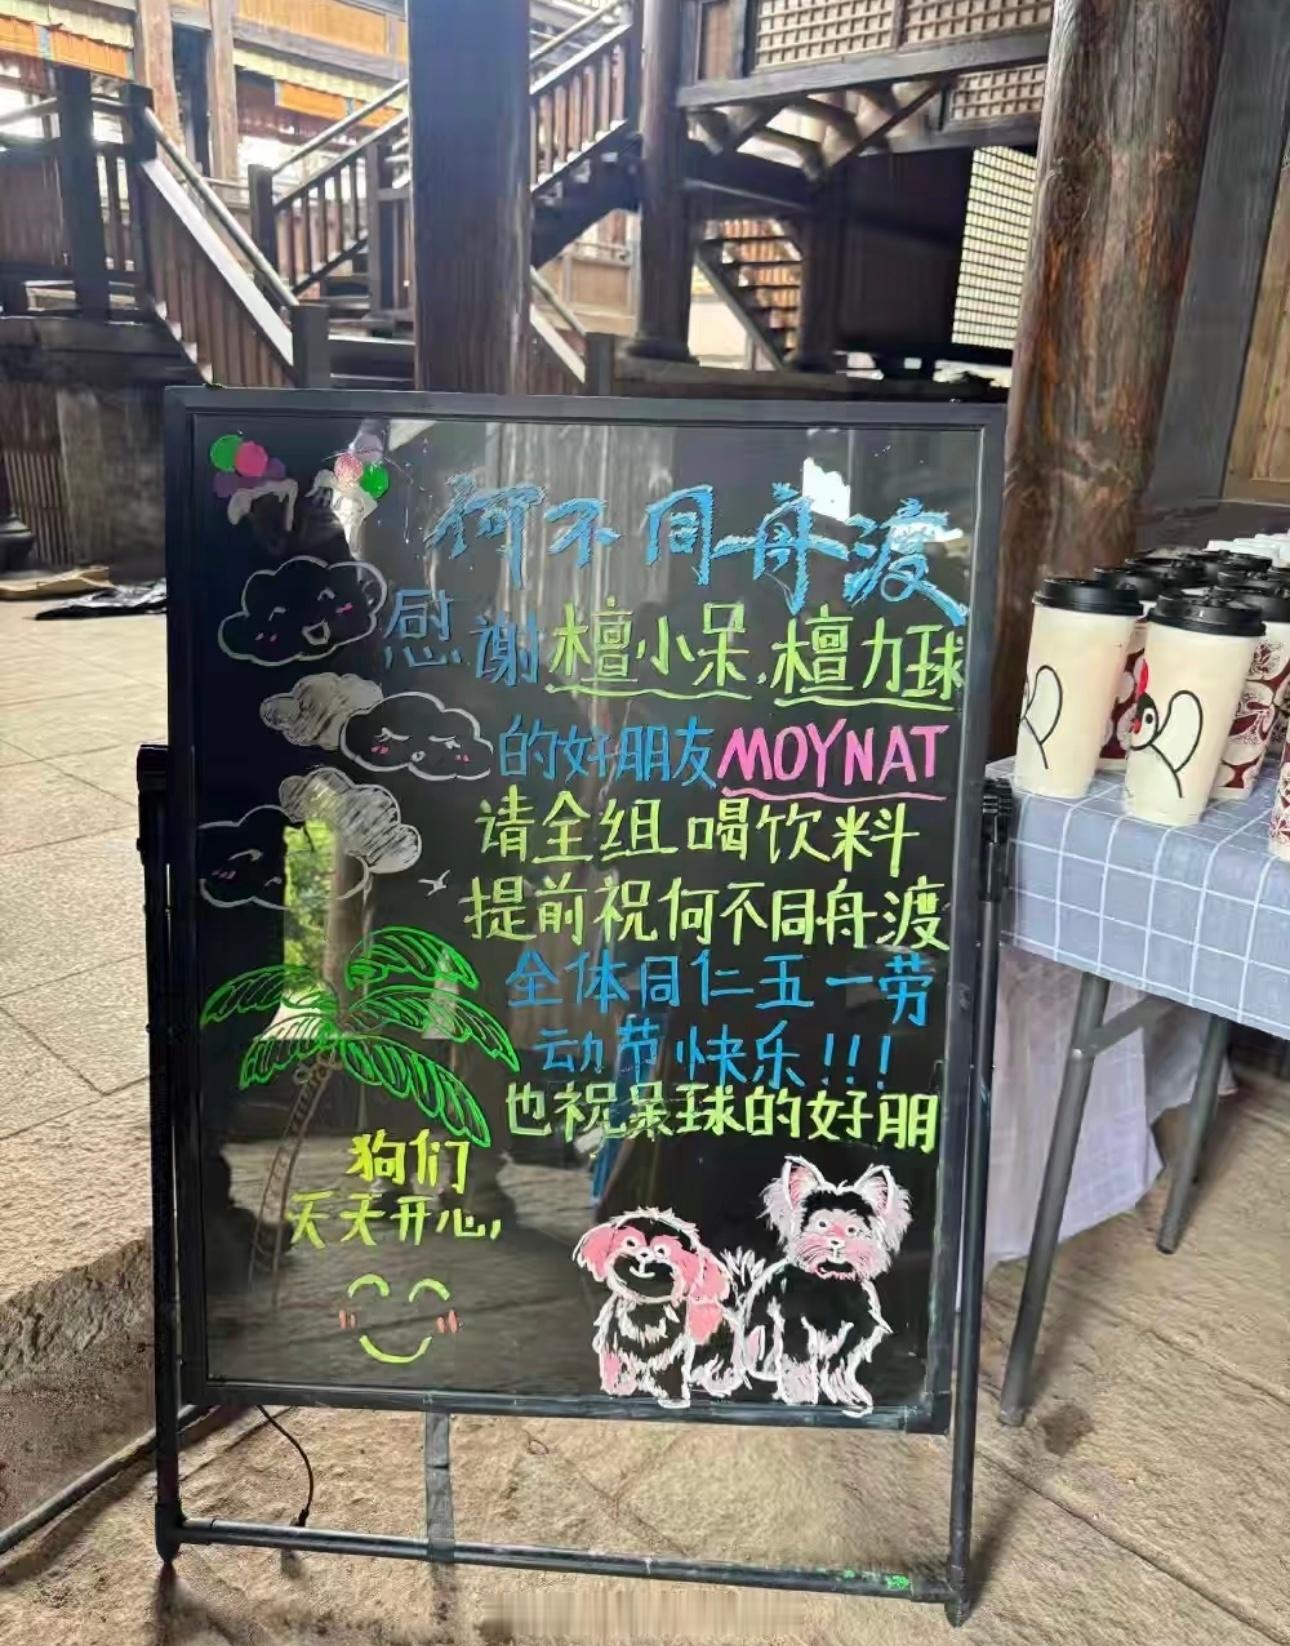 何不同舟渡
感谢檀小呆,檀力球
的好朋友MOYNAT
请全组喝饮料
提前祝何不同舟渡
全体同仁五一劳
动节快乐!!!
也祝呆球的好朋
狗们
天天开心,